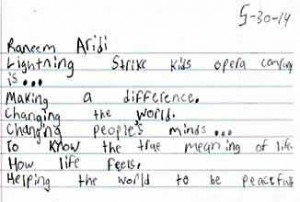 5-30-14
Raneem Aridi
Lightning Strike kids opera
is...
Making a difference.
Changing the world.
Changing people's minds...
To know the true meaning of life.
How life feels.
Helping the world to be peaceful